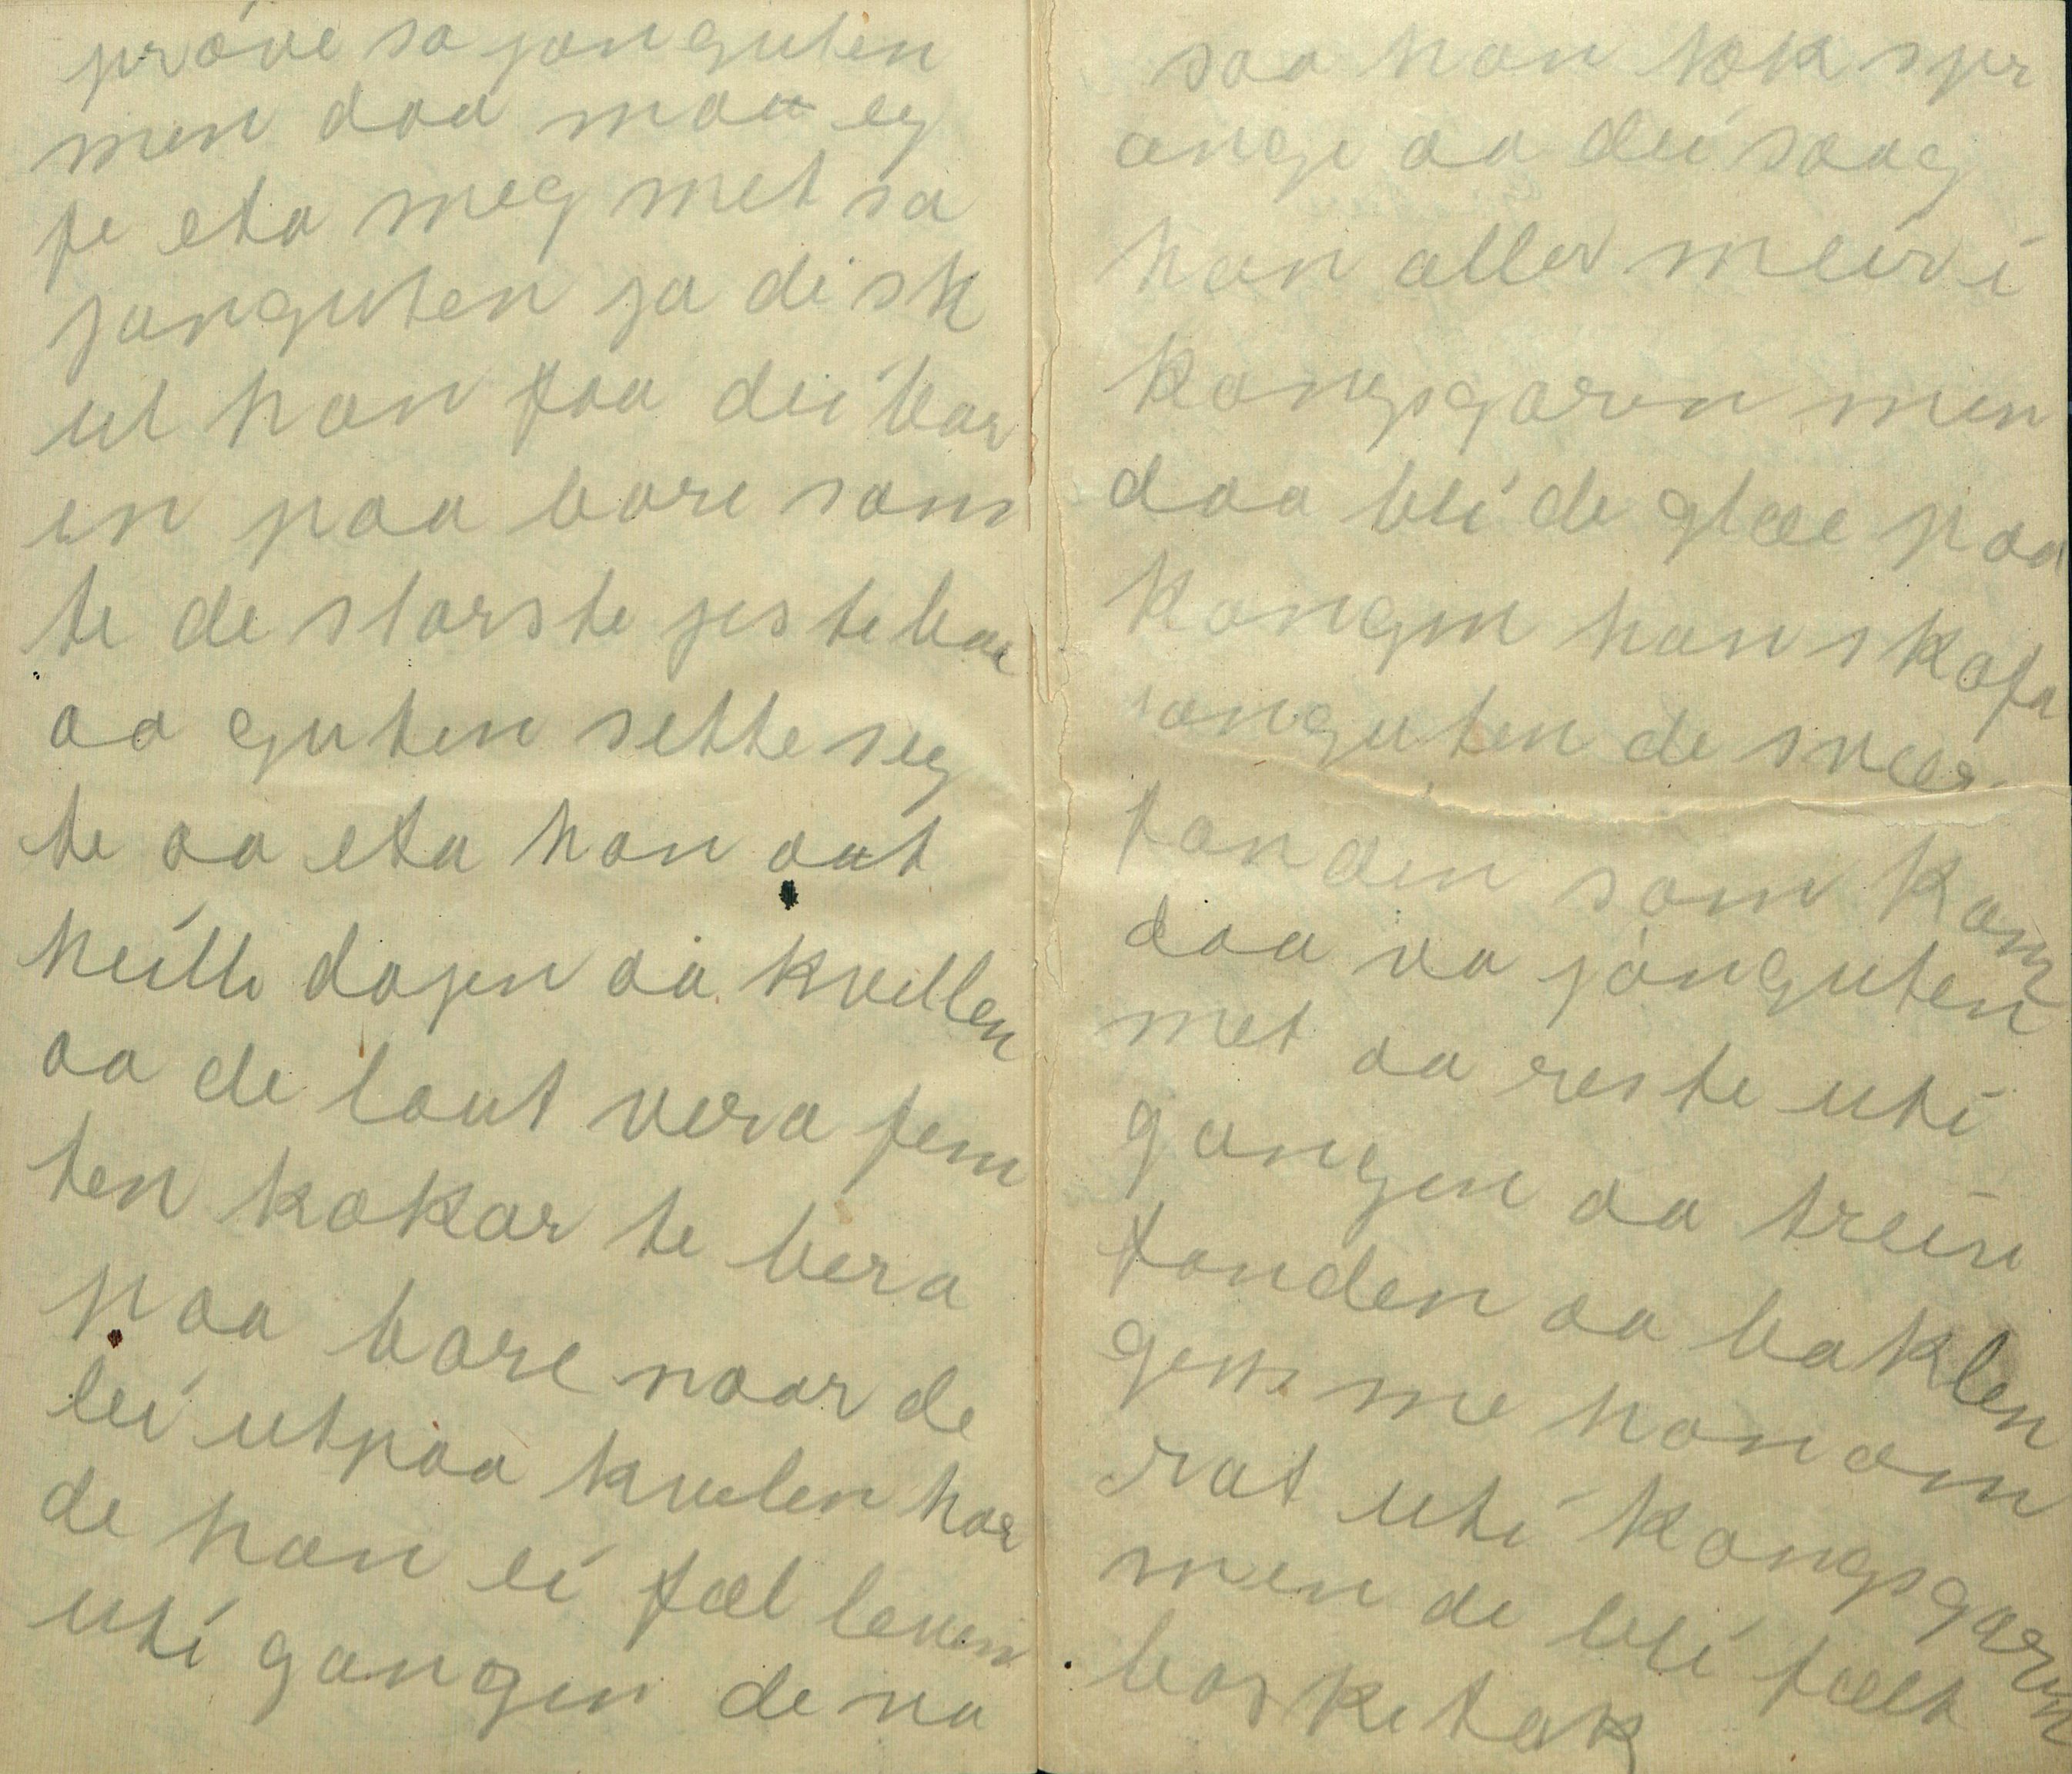 prøve sa jonguten
men daa maa eg
fe eta meg met sa
jonguten ja di sk
ul han faa dei bar
en paa bore som
te de storste jestebu
aa guten sette seg
te aa eta han aat
heille dagen aa kvellen
aa de laut vera fem
ten kokar te bera
paa bore naar de
lei utpaa kvelen hør
de han ei fæl leven
uti gangen de va
saa han tok spr
ange aa dei saag
han aller meir i
kongsgaren men
daa blei de glæe paa
kongen han skafa
jonguten de svær
fanden som kom
daa va jonguten
met aa reste uti
gangen aa trein
fanden aa baklen
gems me honom
rat uti kongsgaren
men de blei fælt
basketak